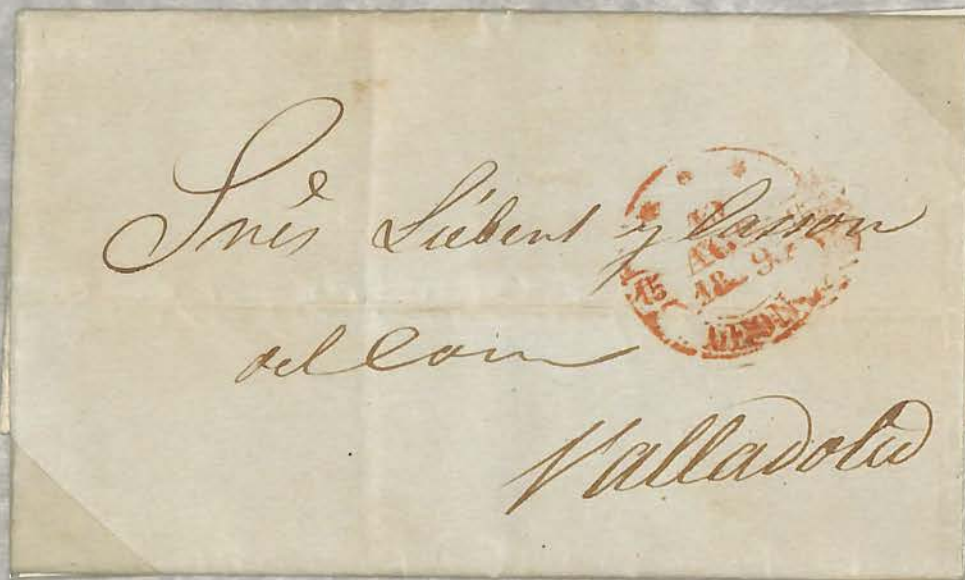 Sres Siebent y Casson
del Com
Valladolid
15
18